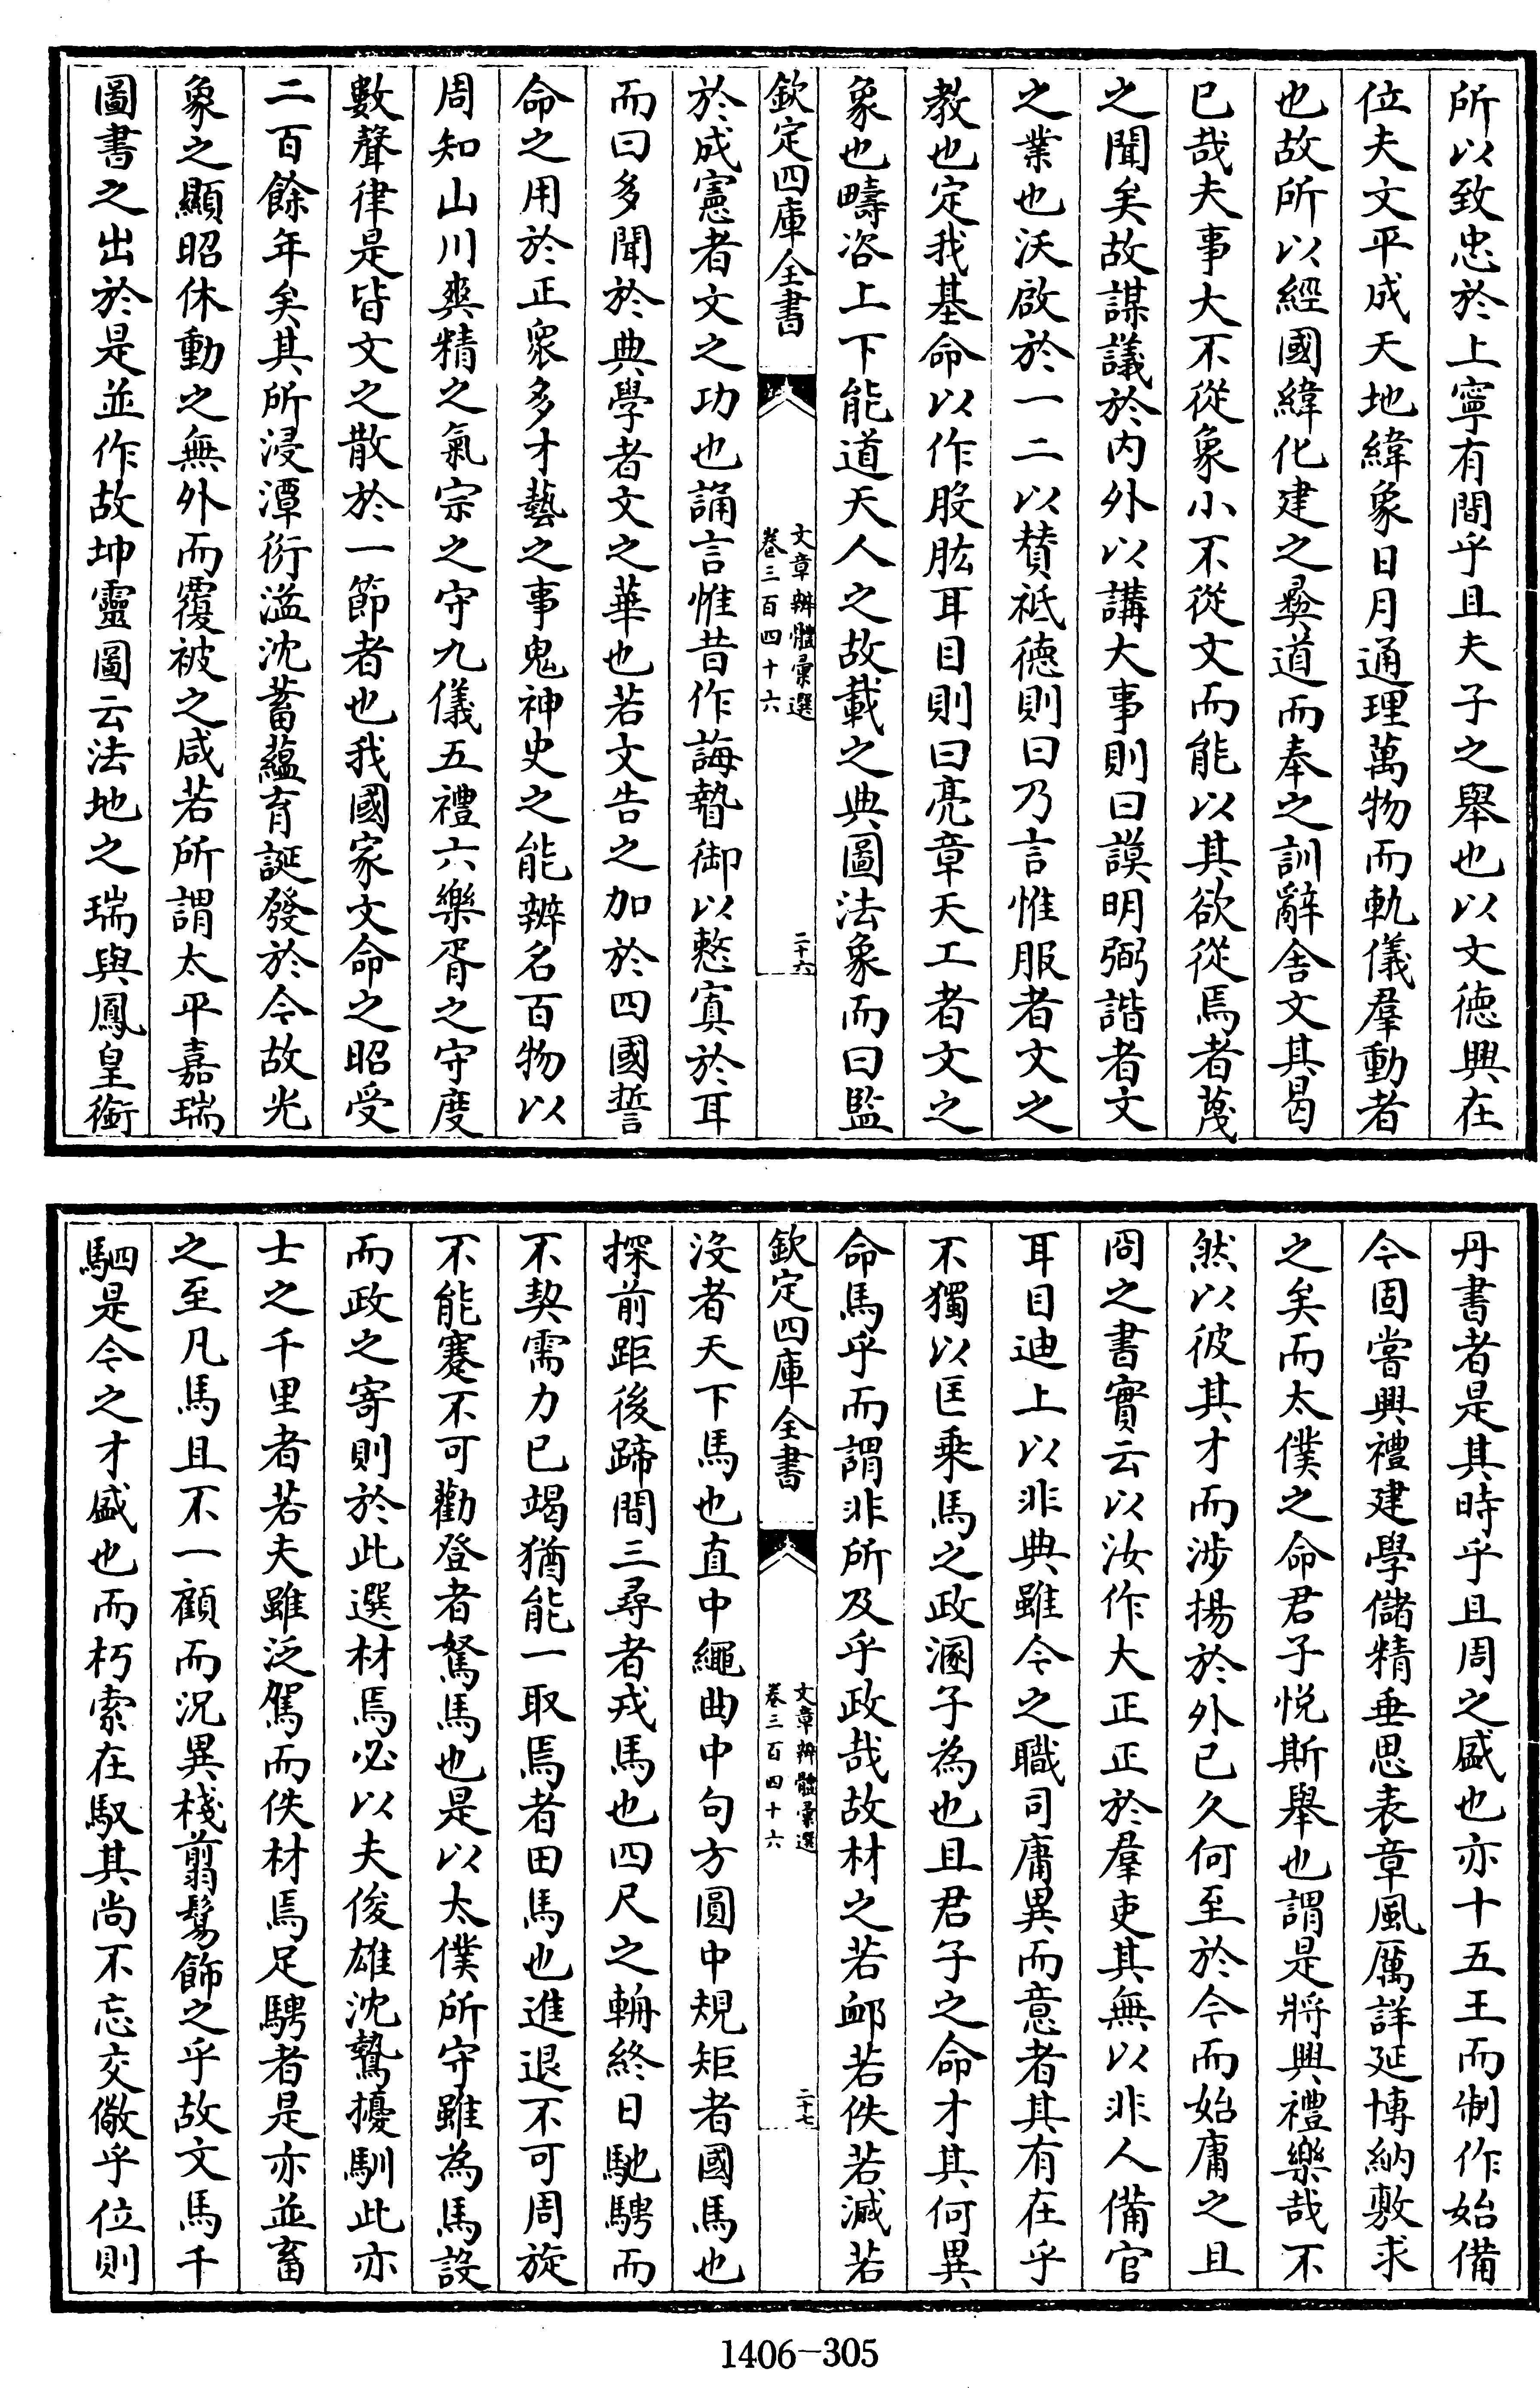 所以致忠於上寧有間乎且夫子之舉也以文德興在
位夫文平成天地緯象日月通理萬物而軌儀羣動者
也故所以經國緯化建之彛道而奉之訓辭舍文其曷
已哉夫事大不從象小不從文而能以其欲從焉者蔑
之聞矣故謀議於内外以講大事則曰謨明弼諧者文
之業也沃啟於一二以賛祗德則曰乃言惟服者文之
教也定我基命以作股肱耳目則曰亮章天工者文之
象也疇咨上下能道天人之故載之典圖法象而曰監
欽定四庫全書
文章辨體彚選
卷三百四十六
二十六
於成憲者文之功也誦言惟昔作誨暬御以憖寘於耳
而曰多聞於典學者文之華也若文告之加於四國誓
命之用於正衆多才藝之事鬼神史之能辨名百物以
周知山川爽精之氣宗之守九儀五禮六樂胥之守度
數聲律是皆文之散於一節者也我國家文命之昭受
二百餘年矣其所浸潭衍溢沈蓄蘊育誕發於今故光
象之顯昭休動之無外而覆被之咸若所謂太平嘉瑞
圖書之出於是並作故坤靈圖云法地之瑞與鳳皇銜
丹書者是其時乎且周之盛也亦十五王而制作始備
今固嘗興禮建學儲精垂思表章風厲詳延博納敷求
之矣而太僕之命君子悅斯舉也謂是將興禮樂哉不
然以彼其才而涉揚於外已久何至於今而始庸之且
冏之書實云以汝作大正正於羣吏其無以非人備官
耳目迪上以非典雖今之職司庸異而意者其有在乎
不獨以匡乘馬之政溷子為也且君子之命才其何異
命馬乎而謂非所及乎政哉故材之若䘏若佚若滅若
欽定四庫全書
文章辨體彚選
卷三百四十六
二十七
沒者天下馬也直中繩曲中句方圓中規矩者國馬也
探前距後蹄間三尋者戎馬也四尺之輈終日馳騁而
不契需力已竭猶能一取焉者田馬也進退不可周旋
不能蹇不可勸登者駑馬也是以太僕所守雖為馬設
而政之寄則於此選材焉必以夫俊雄沈鷙擾馴此亦
士之千里者若夫雖泛駕而佚材焉足騁者是亦並畜
之至凡馬且不一顧而況異棧翦鬄飾之乎故文馬千
駟是今之才盛也而朽索在馭其尚不忘交儆乎位則
1406-305